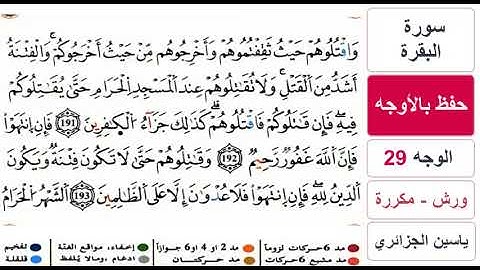 وَاقْتُلُوهُمْ حَيْثُ ثَقِفْتُمُوهُمْ وَأَخْرِجُوهُم مِّنْ حَيْثُ أَخْرَجُوكُمْ وَالْفِتْنَةُ
أَشَدُّ مِنَ الْقَتْلِ وَلَا تُقَاتِلُوهُمْ عِندَ الْمَسْجِدِ الْحَرَامِ حَتَّىٰ يُقَاتِلُوكُمْ
فِيهِ فَإِن قَاتَلُوكُمْ فَاقْتُلُوهُمْ كَذَٰلِكَ جَزَاءُ الْكَافِرِينَ 191 فَإِنِ انتَهَوْا
فَإِنَّ اللَّهَ غَفُورٌ رَّحِيمٌ 192 وَقَاتِلُوهُمْ حَتَّىٰ لَا تَكُونَ فِتْنَةٌ وَيَكُونَ
الدِّينُ لِلَّهِ فَإِنِ انتَهَوْا فَلَا عُدْوَانَ إِلَّا عَلَى الظَّالِمِينَ 193 الشَّهْرُ الْحَرَامُ
سورة
البقرة
حفظ بالأوجه
الوجه 29
ورش - مكررة
ياسين الجزائري
مد 6 حركات لزوماً
مد 2 او 4 او 6 جوازاً
إخفاء، ومواقع الغنة
تفخيم
مد مشبع 6 حركات
مد حركتان
ادغام ، ومالا يلفظ
قلقلة